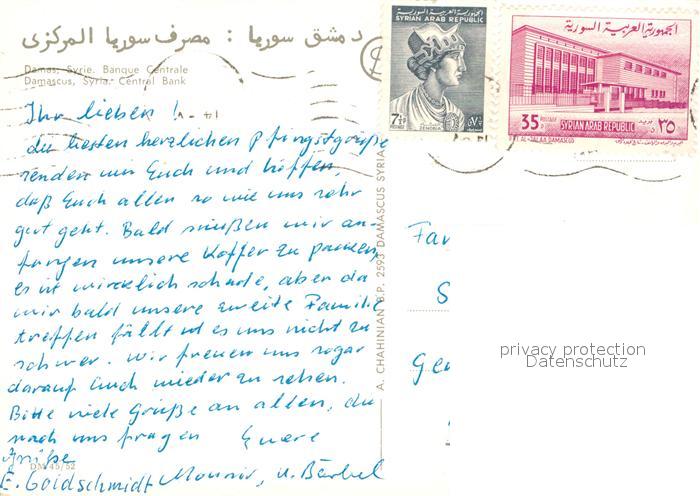 دمشق سوريا : مصرف سوريا المركزى
Damas, Syrie. Banque Centrale
Damascus, Syria. Central Bank
الجمهورية العربية السورية
SYRIAN ARAB REPUBLIC
7½
POSTAGE
ZENOBIA
الجمهورية العربية السورية
35 POSTAGE
SYRIAN ARAB REPUBLIC
بريد ٣٥
AL-JALAA, DAMASCUS
Ihr lieben !
die besten herzlichen Pfingstgrüße
senden wir Euch und hoffen,
daß Euch allen so wie uns sehr
gut geht. Bald müßen wir an-
fangen unsere Koffer zu packen,
es ist wirklich schade, aber da
wir bald unsere zweite Familie
treffen fällt es uns nicht zu
schwer. Wir freuen uns sogar
darauf Euch wieder zu sehen.
Bitte viele Grüße an allen, die
nach uns fragen Euere
Grüße
E. Goldschmidt Mounir, u. Bärbel
DM 45/52
A. CHAHINIAN B.P. 2593 DAMASCUS SYRIA
Fav
S
Ge
privacy protection
Datenschutz